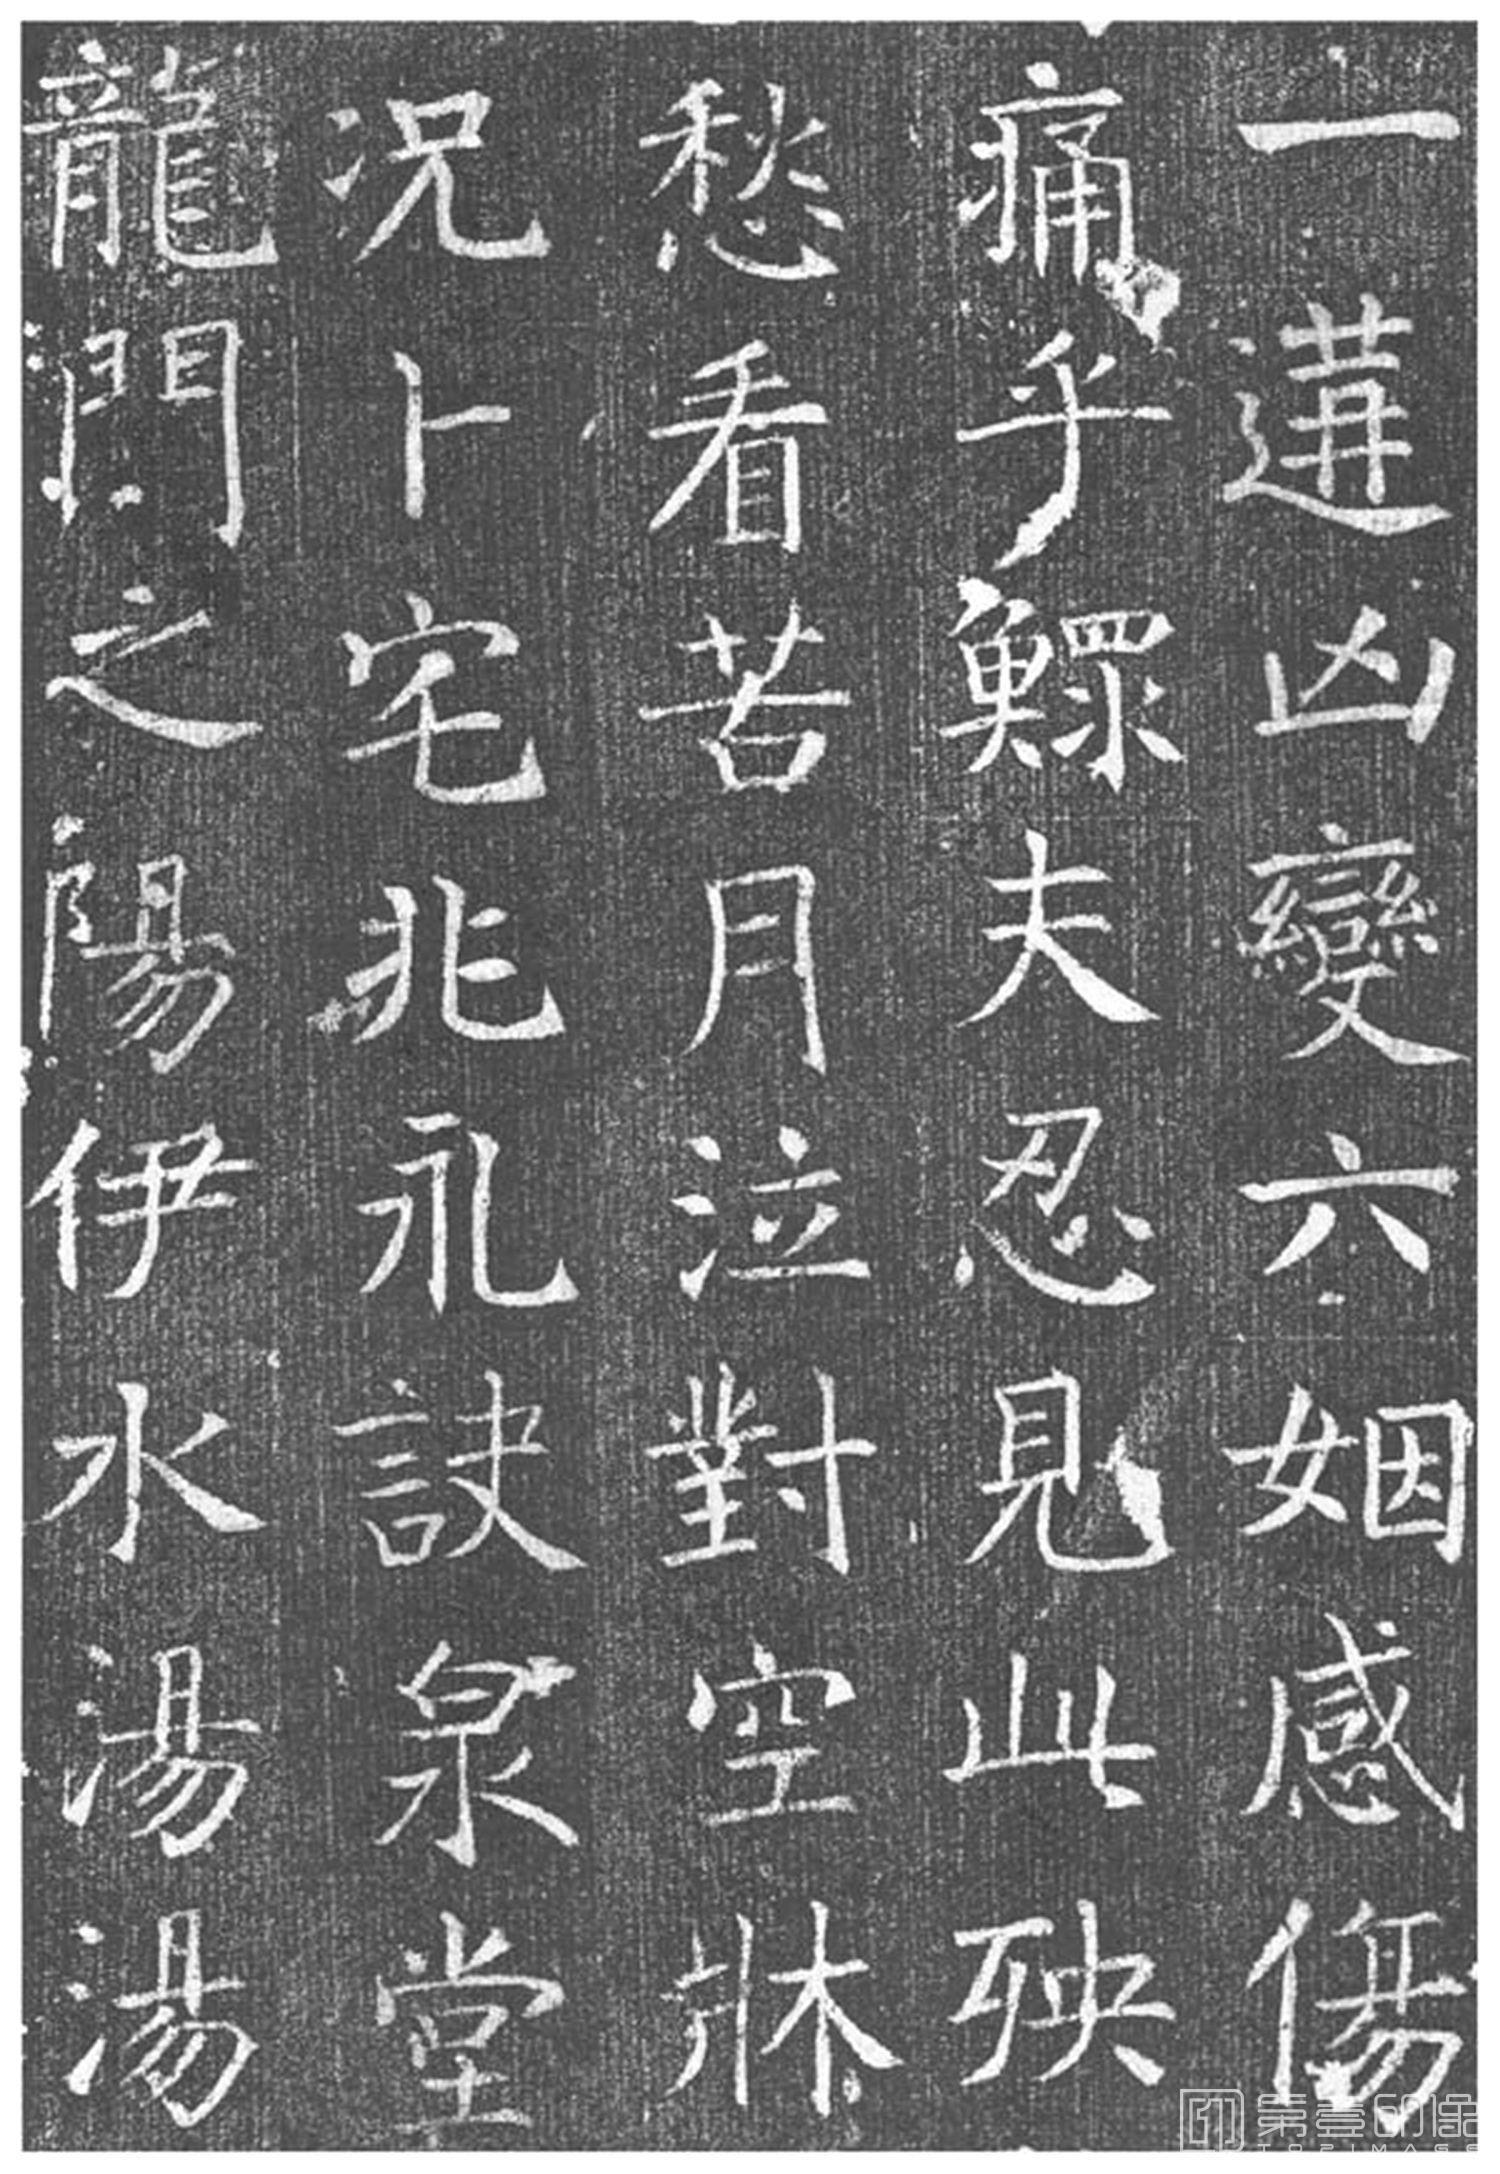 一遘凶變六姻感傷
痛乎鰥夫忍見此殃
愁看苦月泣對空牀
况卜宅兆永訣泉堂
龍門之陽伊水湯湯
第壹印像
TOPIMAGE